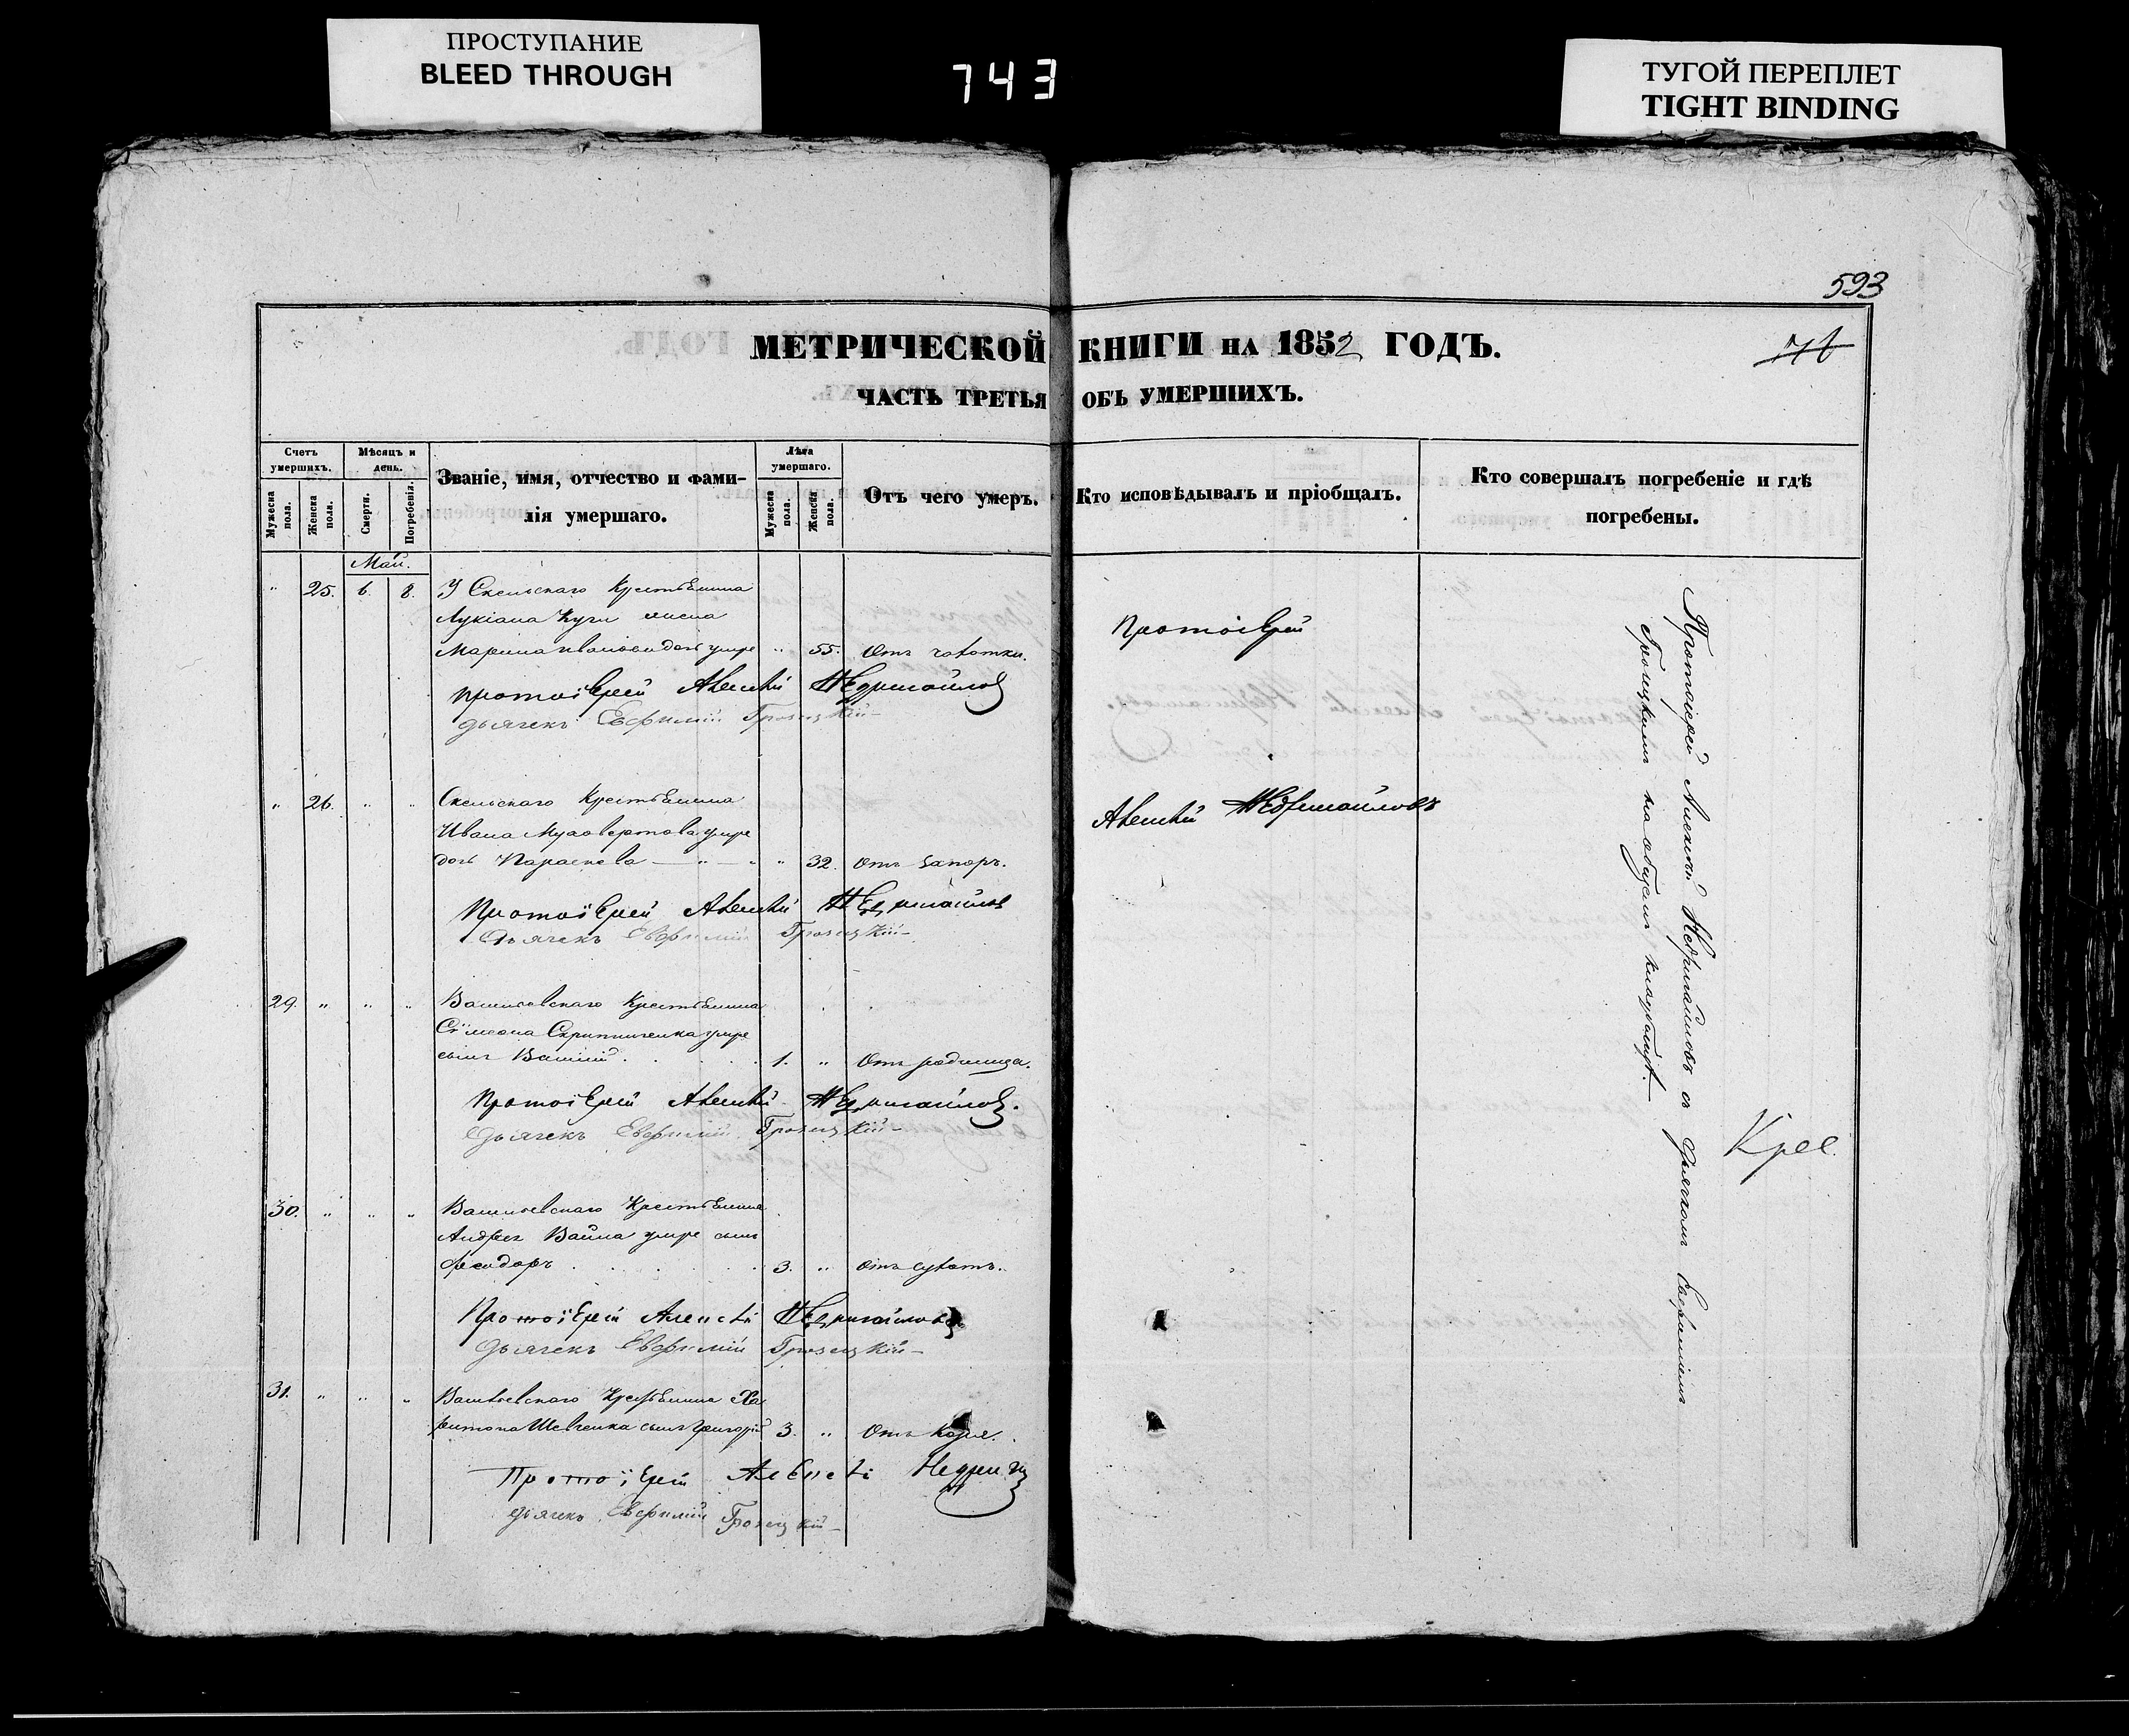 ПРОСТУПАНИЕ
BLEED THROUGH
743
ТУГОЙ ПЕРЕПЛЕТ
TIGHT BINDING
593
МЕТРИЧЕСКОЙ КНИГИ НА 1852 ГОДЪ.
ЧАСТЬ ТРЕТЬЯ ОБЪ УМЕРШИХЪ.
Счетъ умершихъ.
Мужеска пола.
Женска пола.
Мѣсяцъ и день.
Смерти.
Погребенія.
Званіе, имя, отчество и фами-
лія умершаго.
Лѣта умершаго.
Мужеска пола.
Женска пола.
Отъ чего умеръ.
Кто исповѣдывалъ и пріобщалъ.
Кто совершалъ погребеніе и гдѣ
погребены.
Маій.
" 25. 6. 8. У Скельскаго Крестьянина
Лукіана Кучи жена
Марина умре " 55. Отъ чахотки.
Протоіерей Алексѣй Недригайловъ
дьячекъ Евфимій Грозецкій
" 26. " " Скельскаго Крестьянина
Ивана умре
дочь Параскева " 32. Отъ запоръ.
Протоіерей Алексѣй Недригайловъ
дьячекъ Евфимій Грозецкій
29. " " " Крестьянина
Сімеона Скрипниченка умре
сынъ 1. " Отъ родимца.
Протоіерей Алексѣй Недригайловъ.
дьячекъ Евфимій Грозецкій
30. " " " Крестьянина
Андрея Вайла умре сынъ
Феодоръ 3. " Отъ сухотъ.
Протоіерей Алексѣй Недригайловъ
дьячекъ Евфимій Грозецкій
31. " " " Крестьянина Ха
ритона Шевченка сынъ Григорій 3. " Отъ Коря.
Протоіерей Алексѣй
дьячекъ Евфимій Грозецкій
Протоіерей
Алексѣй Недригайловъ
Протоіерей Алексѣй Недригайловъ съ дьячкомъ Евфиміемъ
Грозецкимъ на общемъ кладбищѣ.